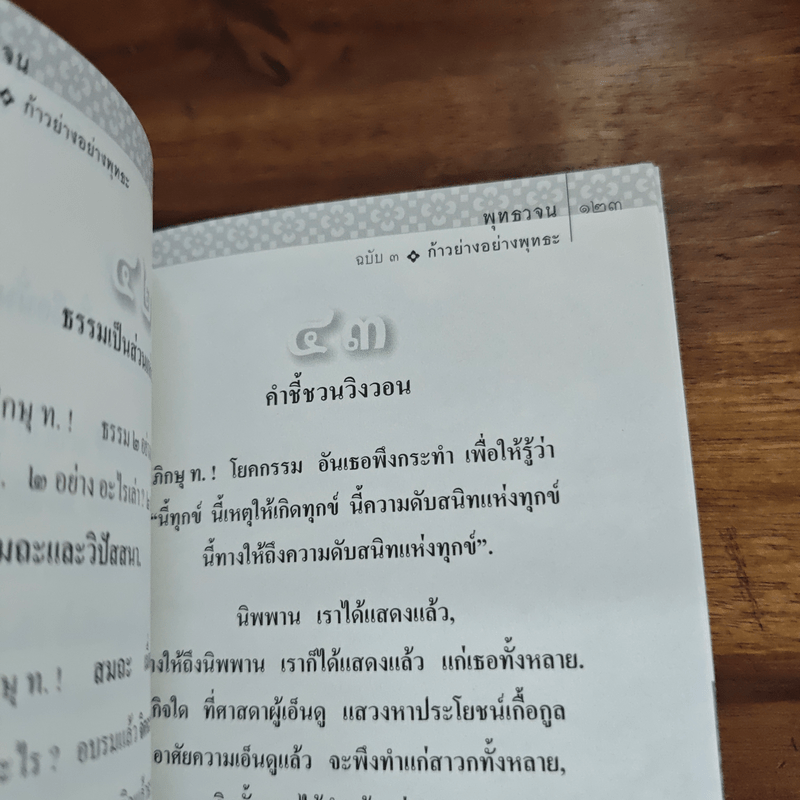 จน
ก้าวย่างอย่างพุทธะ
๔
ธรรมเป็นส่วน
ภิกษุ ท. ! ธรรม ๒ อย่าง
๒ อย่าง อะไรเล่า ?
มถะและวิปัสสนา.
ษุ ท. ! สมถะ
ะไร ? อบรมแล้ว
พุทธวจน ๑๒๓
ฉบับ ๓ ก้าวย่างอย่างพุทธะ
๔๓
คำชี้ชวนวิงวอน
ภิกษุ ท. ! โยคกรรม อันเธอพึงกระทำ เพื่อให้รู้ว่า
“นี้ทุกข์ นี้เหตุให้เกิดทุกข์ นี้ความดับสนิทแห่งทุกข์
นี้ทางให้ถึงความดับสนิทแห่งทุกข์”.
นิพพาน เราได้แสดงแล้ว,
างให้ถึงนิพพาน เราก็ได้แสดงแล้ว แก่เธอทั้งหลาย.
กิจใด ที่ศาสดาผู้เอ็นดู แสวงหาประโยชน์เกื้อกูล
อาศัยความเอ็นดูแล้ว จะพึงทำแก่สาวกทั้งหลาย,